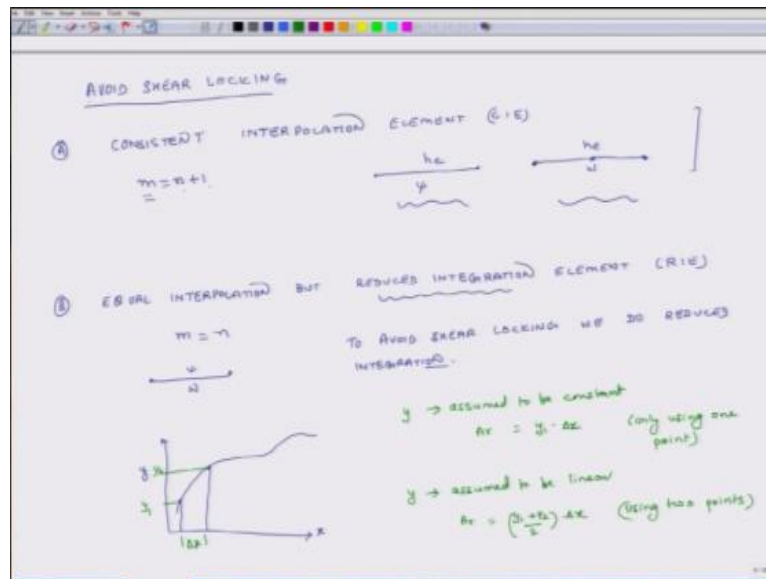 AVOID SHEAR LOCKING
(A) CONSISTENT INTERPOLATION ELEMENT (CIE)
m = n+1
he
ψ
he
ω
(B) EQUAL INTERPOLATION BUT REDUCED INTEGRATION ELEMENT (RIE)
m = n
ψ
ω
TO AVOID SHEAR LOCKING WE DO REDUCED
INTEGRATION.
y → assumed to be constant
Ar = y₁ · Δx (only using one
point)
y → assumed to be linear
Ar = (y₁ + y₂)/2 · Δx (Using two points)
y y₂
y₁
|Δx|
x